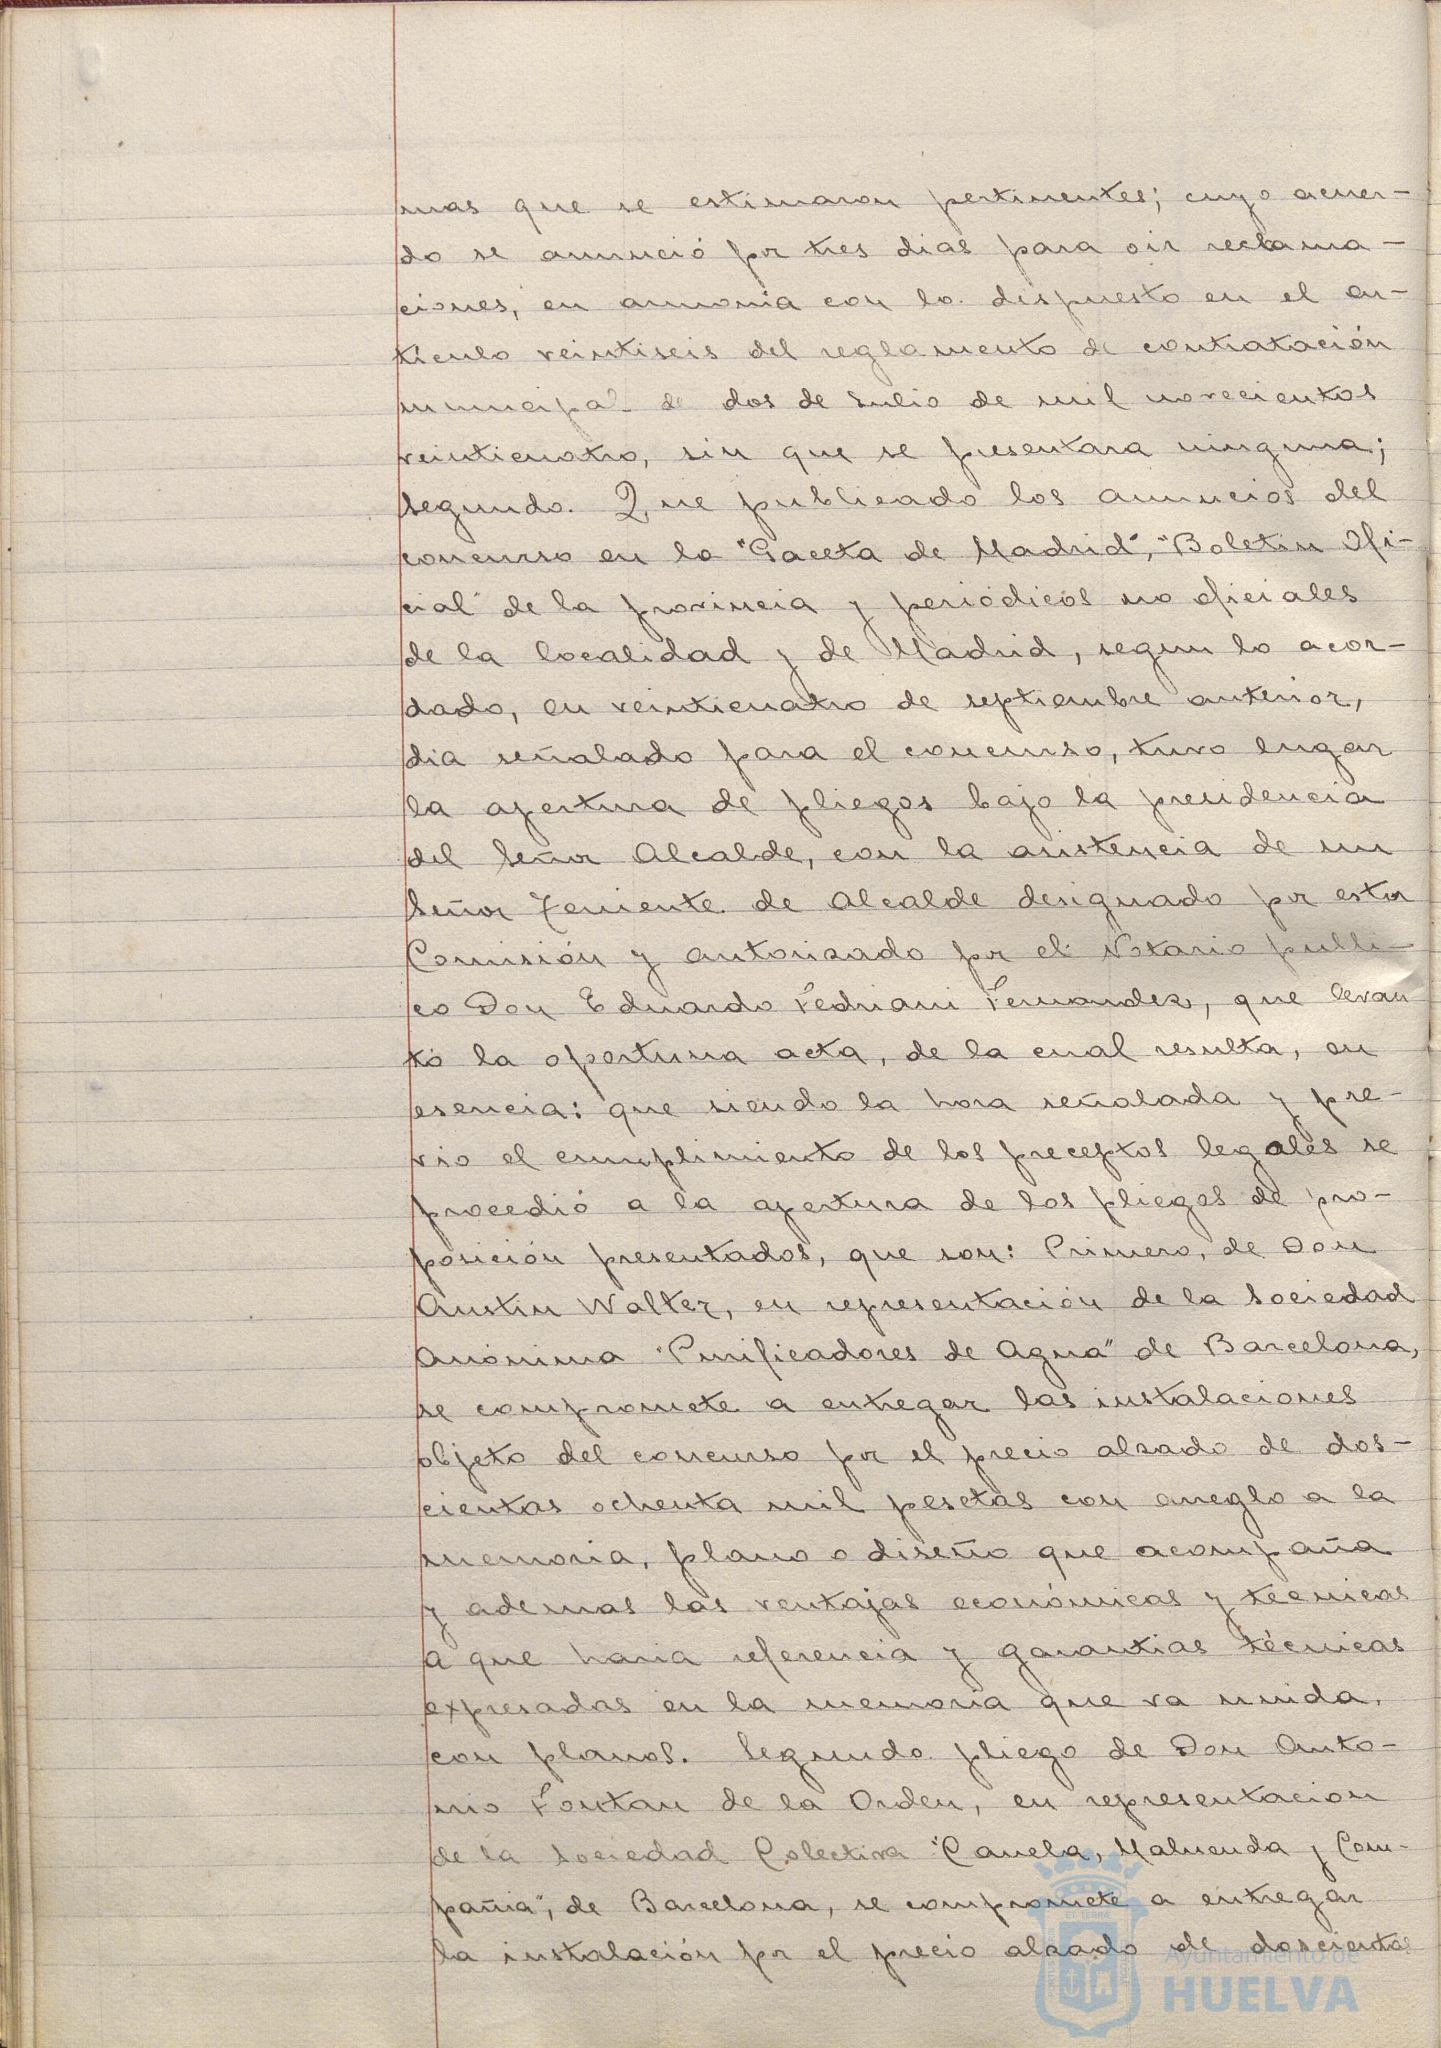 mas que se estimaron pertinentes; cuyo acuer-
do se anunció por tres dias para oir reclama-
ciones, en armonia con lo dispuesto en el ar-
tículo veintiseis del reglamento de contratación
municipal de dos de Julio de mil novecientos
veinticuatro, sin que se presentara ninguna;
Segundo. Que publicado los anuncios del
concurso en la "Gaceta de Madrid", "Boletin Ofi-
cial" de la provincia y periódicos no oficiales
de la localidad y de Madrid, segun lo acor-
dado, en veinticuatro de septiembre anterior,
dia señalado para el concurso, tuvo lugar
la apertura de pliegos bajo la presidencia
del Señor Alcalde, con la asistencia de un
Señor Teniente de Alcalde designado por esta
Comisión y autorizado por el Notario públi-
co Don Eduardo Fedriani Fernandez, que levan
tó la oportuna acta, de la cual resulta, en
esencia: que siendo la hora señalada y pre-
vio el cumplimiento de los preceptos legales se
procedió a la apertura de los pliegos de pro-
posición presentados, que son: Primero, de Don
Austin Walter, en representación de la Sociedad
Anónima "Purificadores de Agua" de Barcelona,
se compromete a entregar las instalaciones
objeto del concurso por el precio alzado de dos-
cientas ochenta mil pesetas con arreglo a la
memoria, plano o diseño que acompaña
y ademas las ventajas económicas y tecnicas
a que haria referencia y garantias técnicas
expresadas en la memoria que va unida.
con planos. Segundo pliego de Don Anto-
nio Fontan de la Orden, en representacion
de la Sociedad Colectiva "Canela, Maluenda y Com-
pañia", de Barcelona, se compromete a entregar
la instalación por el precio alzado de doscientas
Ayuntamiento de
HUELVA